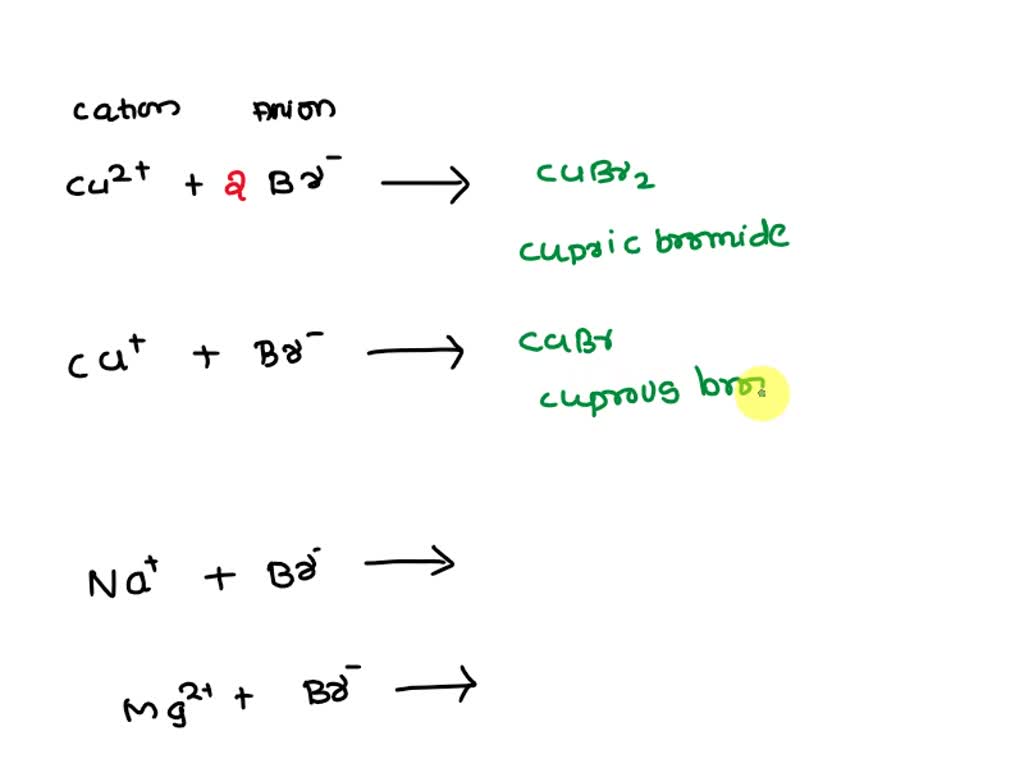 cation anion
Cu²⁺ + 2 Br⁻ → CuBr₂
cupric bromide
Cu⁺ + Br⁻ → CuBr
cuprous bro
Na⁺ + Br⁻ →
Mg²⁺ + Br⁻ →